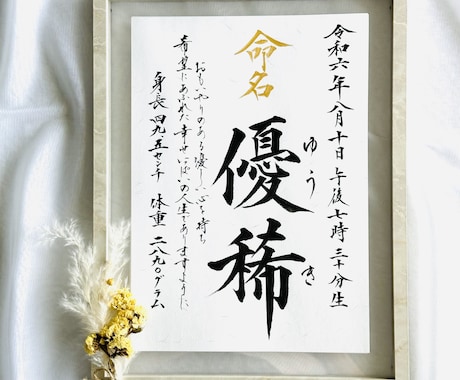 令和六年八月十日 午後七時三十分生
優稀
ゆうき
命名
おもいやりのある優しい心を持ち
希望にあふれた幸せいっぱいの人生でありますように
身長 四九.五センチ 体重 二八九〇グラム